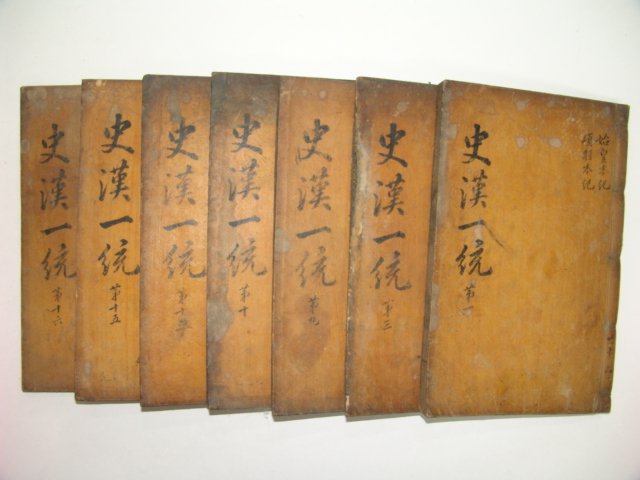 始皇本紀
項羽本紀
史漢一統 第一
史漢一統 第三
史漢一統 第九
史漢一統 第十
史漢一統 第十
史漢一統 第十五
史漢一統 第十六